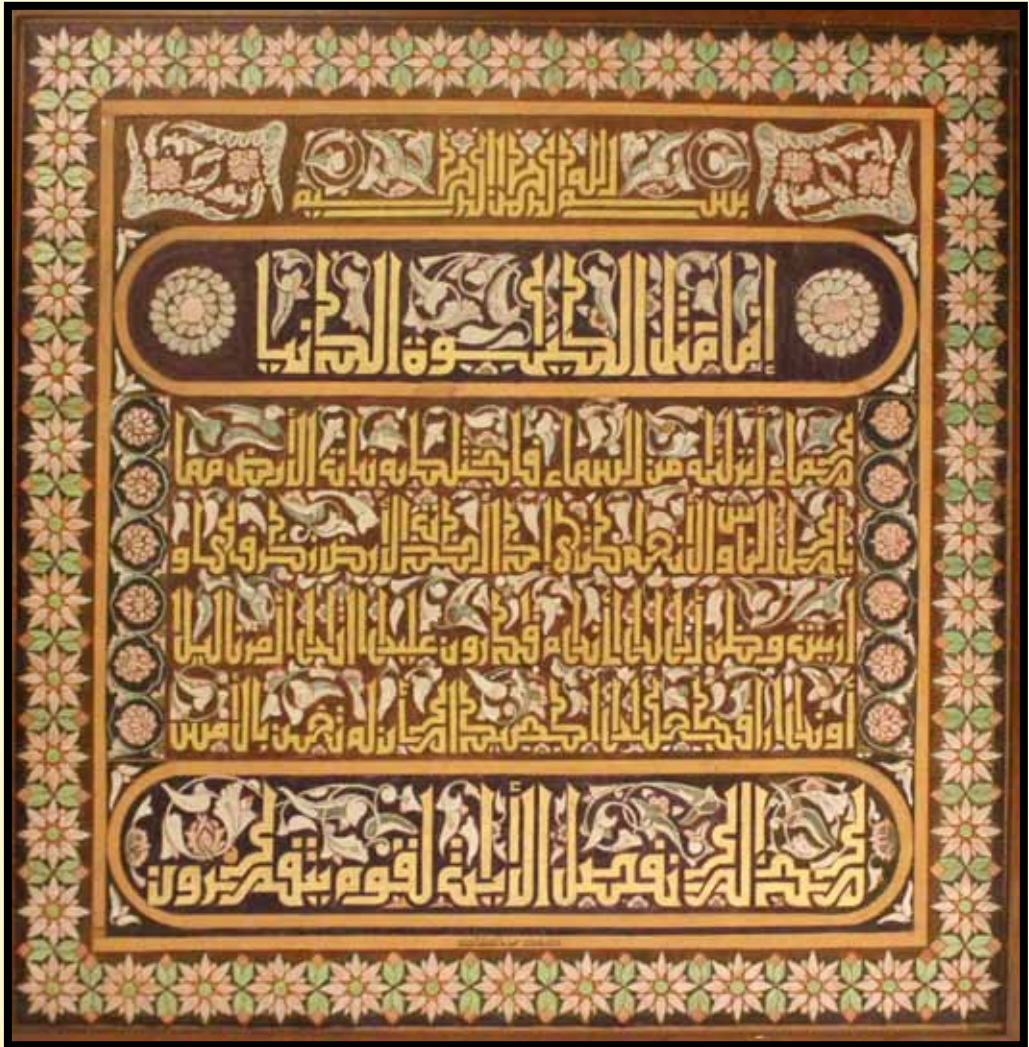 بسم الله الرحمن الرحيم
إنما مثل الحيوة الدنيا
كماء أنزلنه من السماء فاختلط به نبات الأرض مما
يأكل الناس والأنعم حتى إذا أخذت الأرض زخرفها و
ازينت وظن أهلها أنهم قدرون عليها أتها أمرنا ليلا
أو نهارا فجعلنها حصيدا كأن لم تغن بالأمس
كذلك نفصل الأيت لقوم يتفكرون